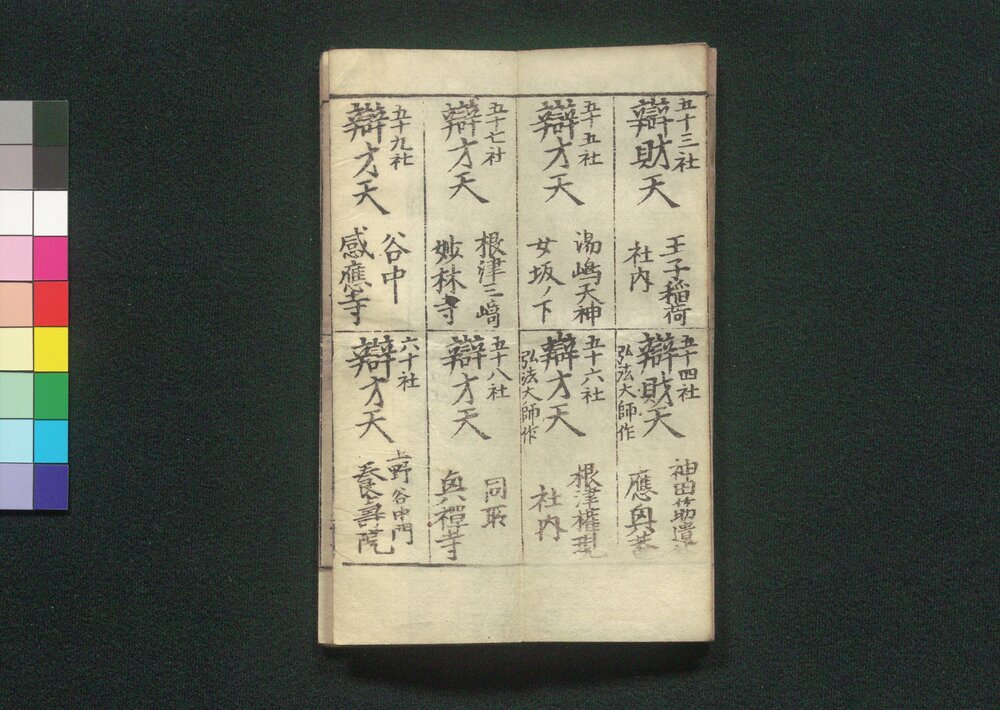 五十三社
辯財天
王子稲荷
社内
五十四社
辯財天
弘法大師作
神田筋違
應奥
五十五社
辯才天
湯嶋天神
女坂ノ下
五十六社
辯才天
弘法大師作
根津権現
社内
五十七社
辯才天
根津三﨑
妙林寺
五十八社
辯才天
同所
奥禪寺
五十九社
辯才天
谷中
感應寺
六十社
辯才天
上野谷中門
養壽院